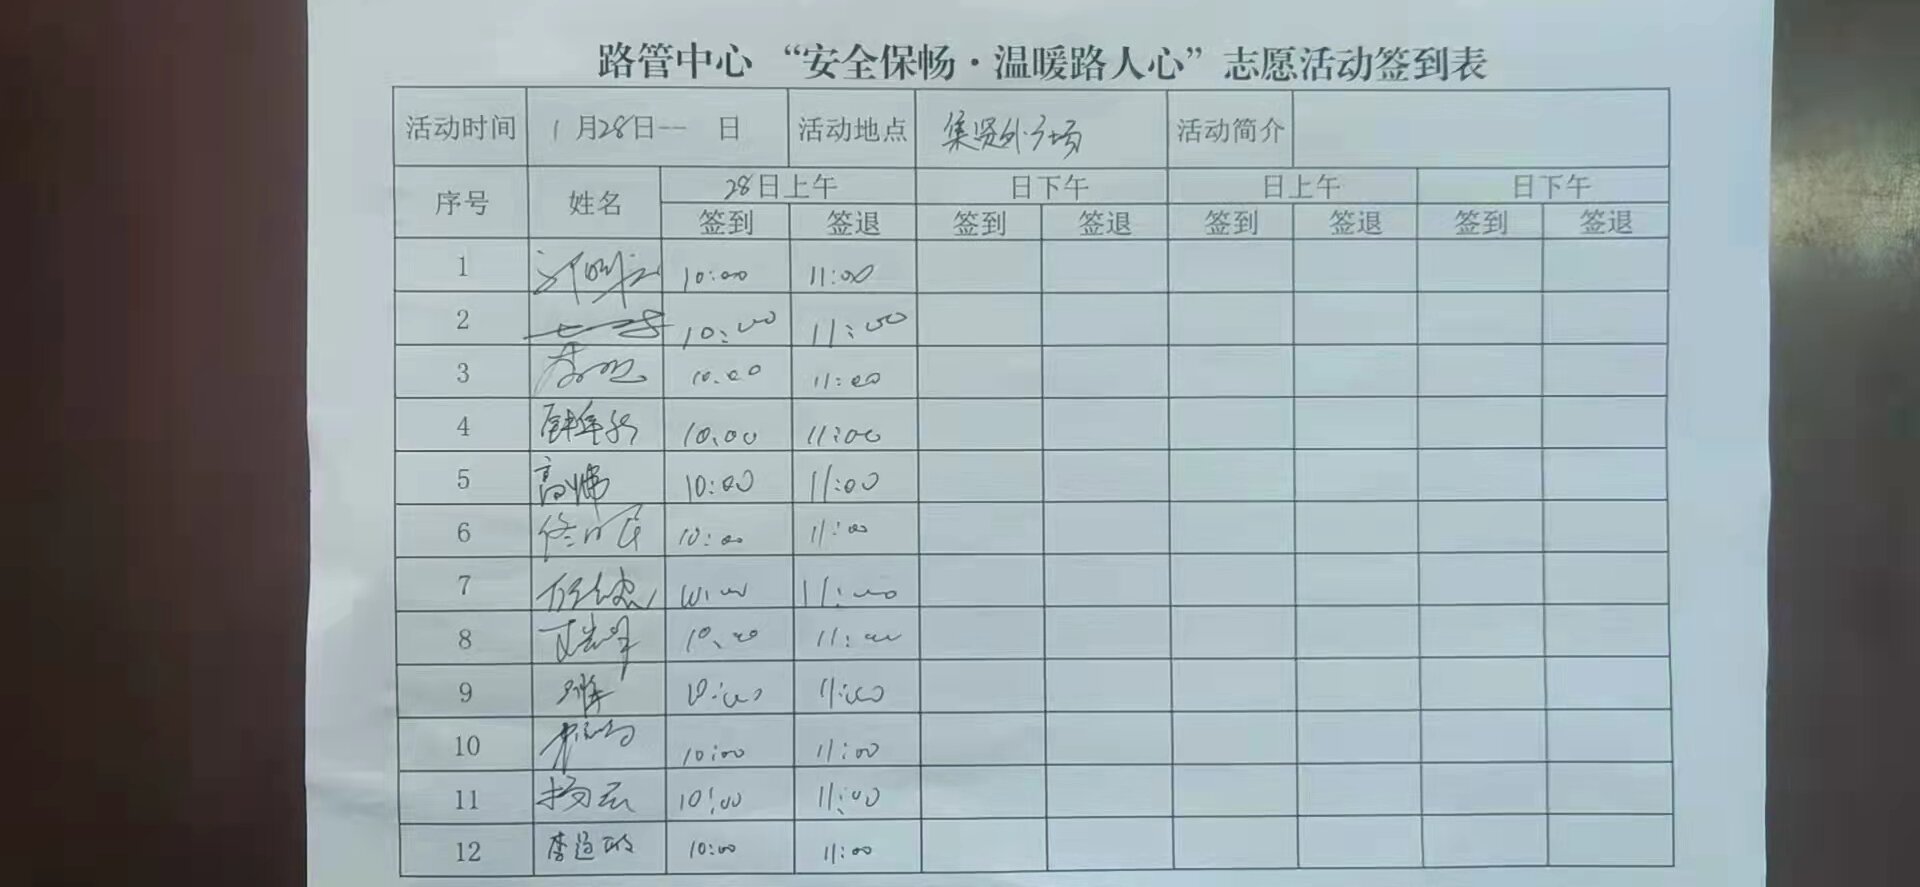 路管中心 “安全保畅·温暖路人心”志愿活动签到表
活动时间 1月28日-- 日 活动地点 集贤外广场 活动简介
序号 姓名 28日上午 日下午 日上午 日下午
签到 签退 签到 签退 签到 签退 签到 签退
1 10:00 11:00
2 10:00 11:00
3 10.00 11:00
4 10.00 11:00
5 高娜 10:00 11:00
6 10:00 11:00
7 10:00 11:00
8 10.00 11:00
9 10:00 11:00
10 10:00 11:00
11 杨云 10:00 11:00
12 10:00 11:00